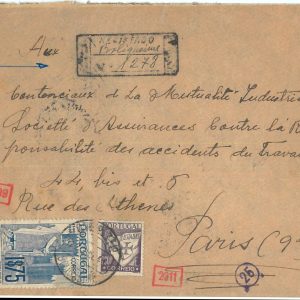 Aux
REGISTADO
Boliqueime
1278
Contenciaux d La Mutualité Industrie
Société d'Assurances Contre la R
ponsabilité des accidents du Travai
44, bis et 5
Rue des Athènes
Paris (9
PORTUGAL
1$75
PORTUGAL
CORREIO
2011
26